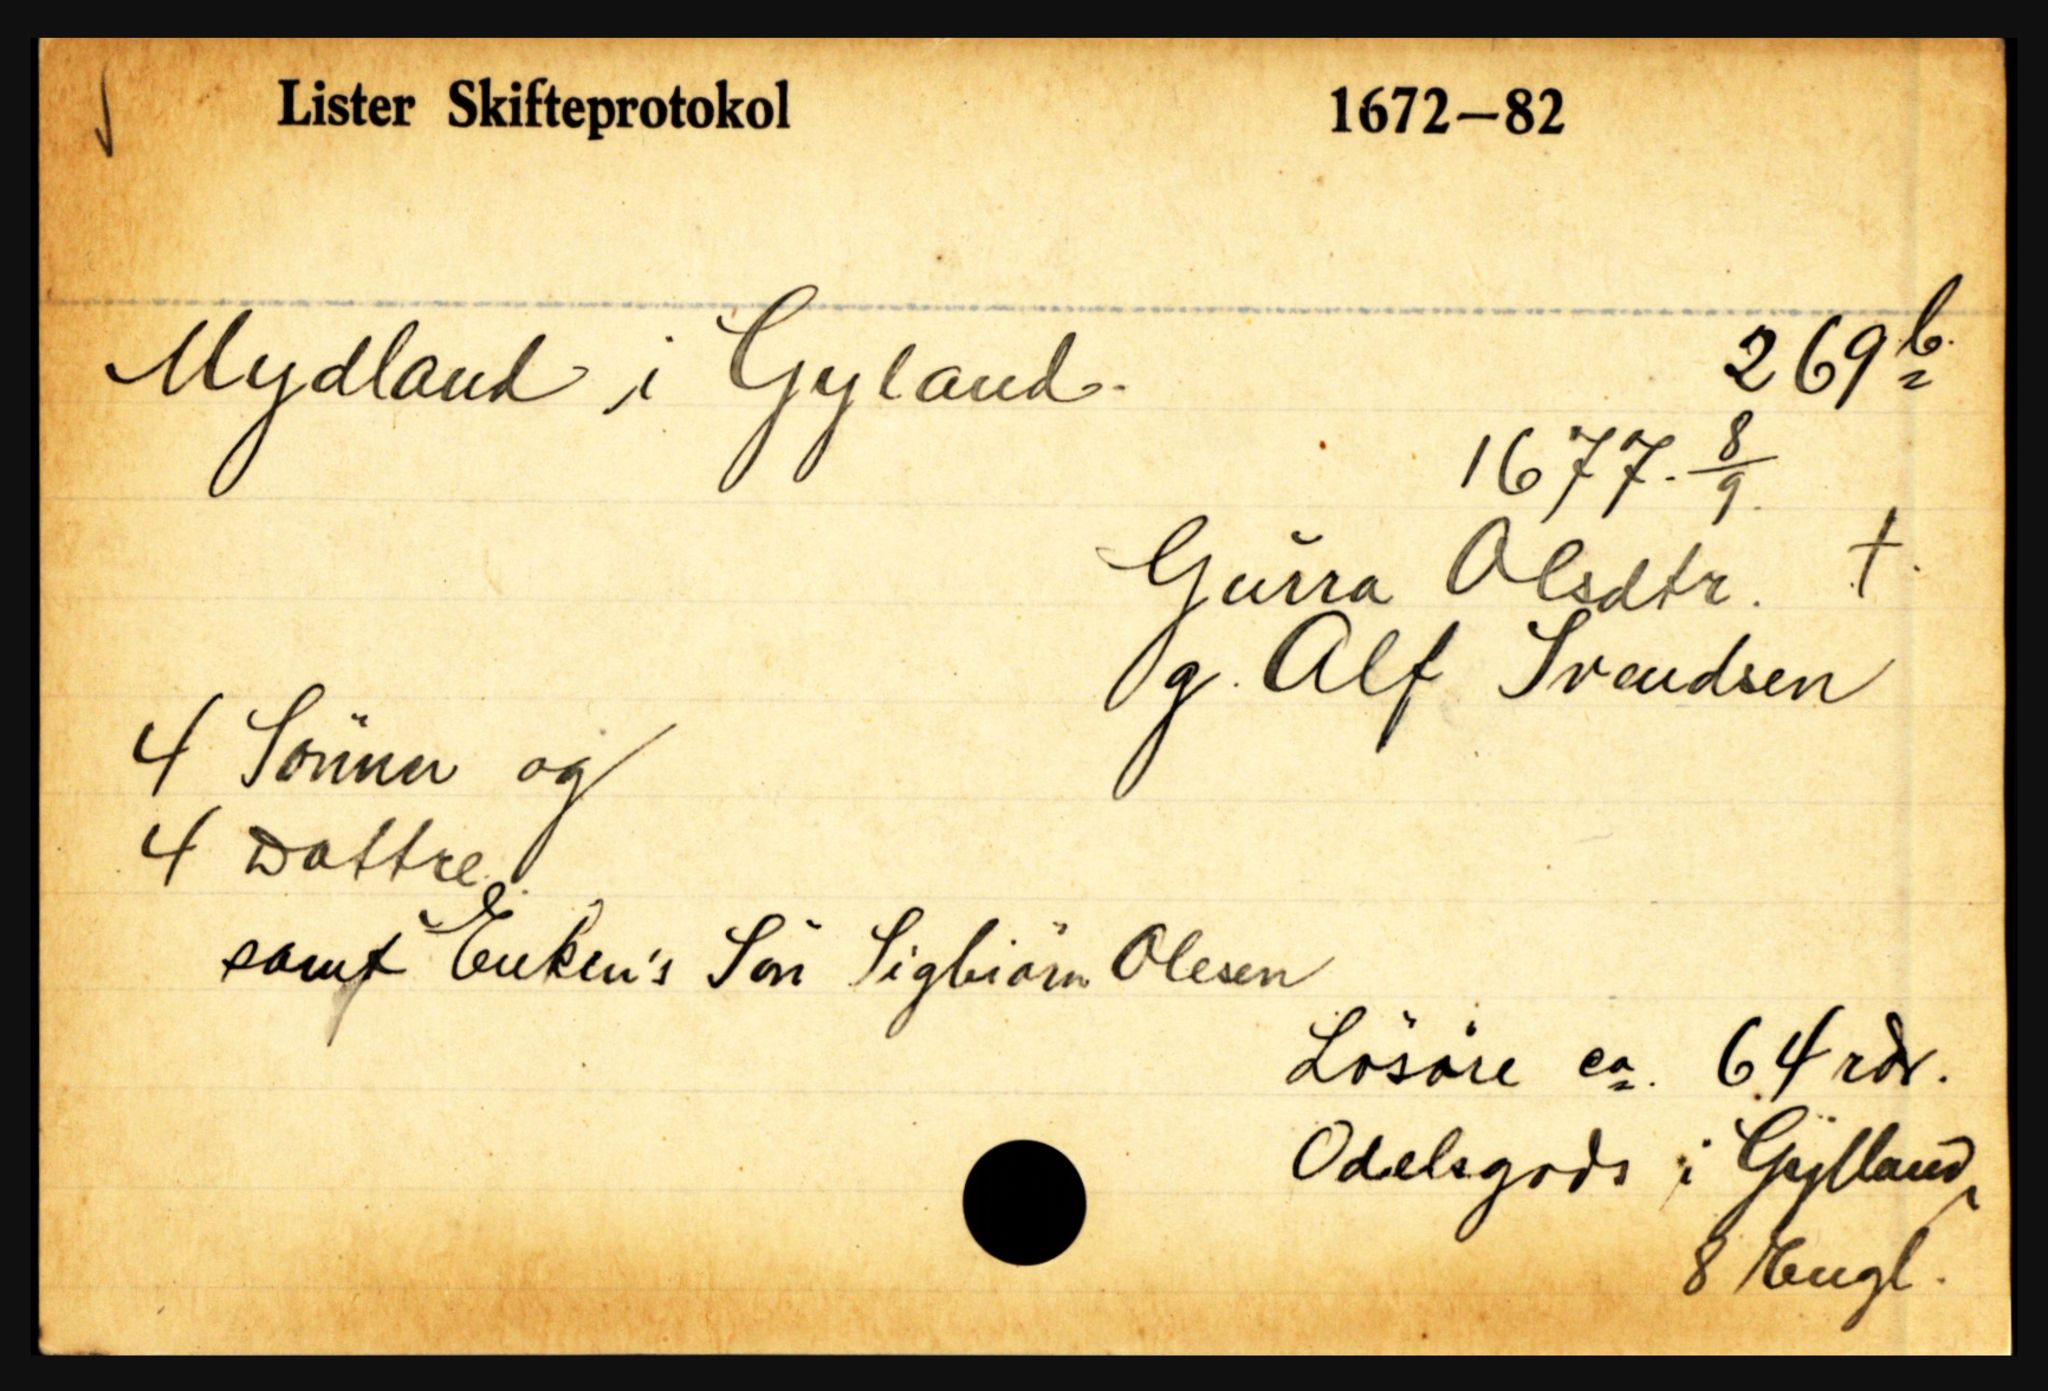 Lister Skifteprotokol 1672—82
Mydland i Gyland. 269 b.
1677. 8/9.
Gurra Olsdtr. †.
g. Alf Svendsen
4 Sönner og
4 Dottre.
samt Enken's Sön Sigbiörn Olesen
Lösöre ca. 64 rdr.
Odelsgods i Gylland,
8 Engl.